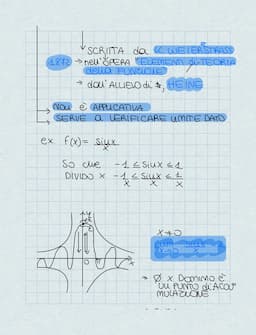 SCRITTA da K. WEIERSTRASS
1872 → nell'OPERA "ELEMENTI di TEORIA
della FUNZIONE"
→ dall'ALLIEVO di *, HEINE
NON è APPLICATIVA
SERVE a VERIFICARE LIMITE DATO
ex f(x) = sinx
x
So che -1 ≤ sinx ≤ 1
DIVIDO x -1 ≤ sinx ≤ 1
x x x
x→0
→ 0 x DOMINIO È
UN PUNTO di ACCU
MULAZIONE